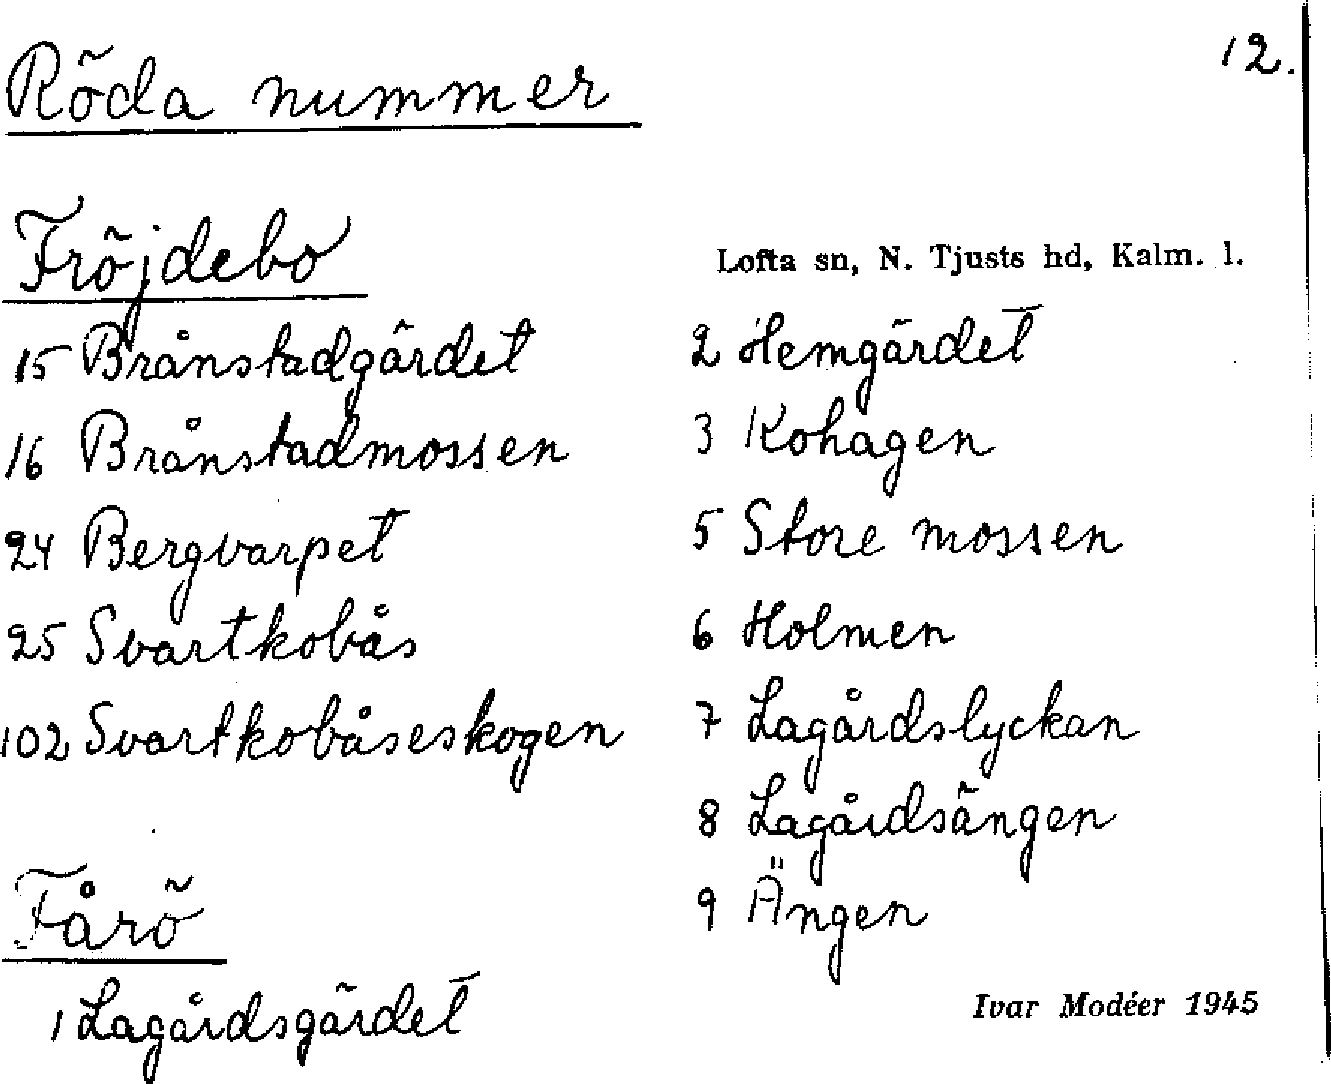 12.
Röda nummer
Fröjdebo
Lofta sn, N. Tjusts hd, Kalm. l.
15 Brånstadgärdet
16 Brånstadmossen
24 Bergvarpet
25 Svartkobås
102 Svartkobåseskogen
Fårö
1 Lagårdsgärdet
2 Hemgärdet
3 Kohagen
5 Store mossen
6 Holmen
7 Lagårdslyckan
8 Lagårdsängen
9 Ängen
Ivar Modéer 1945